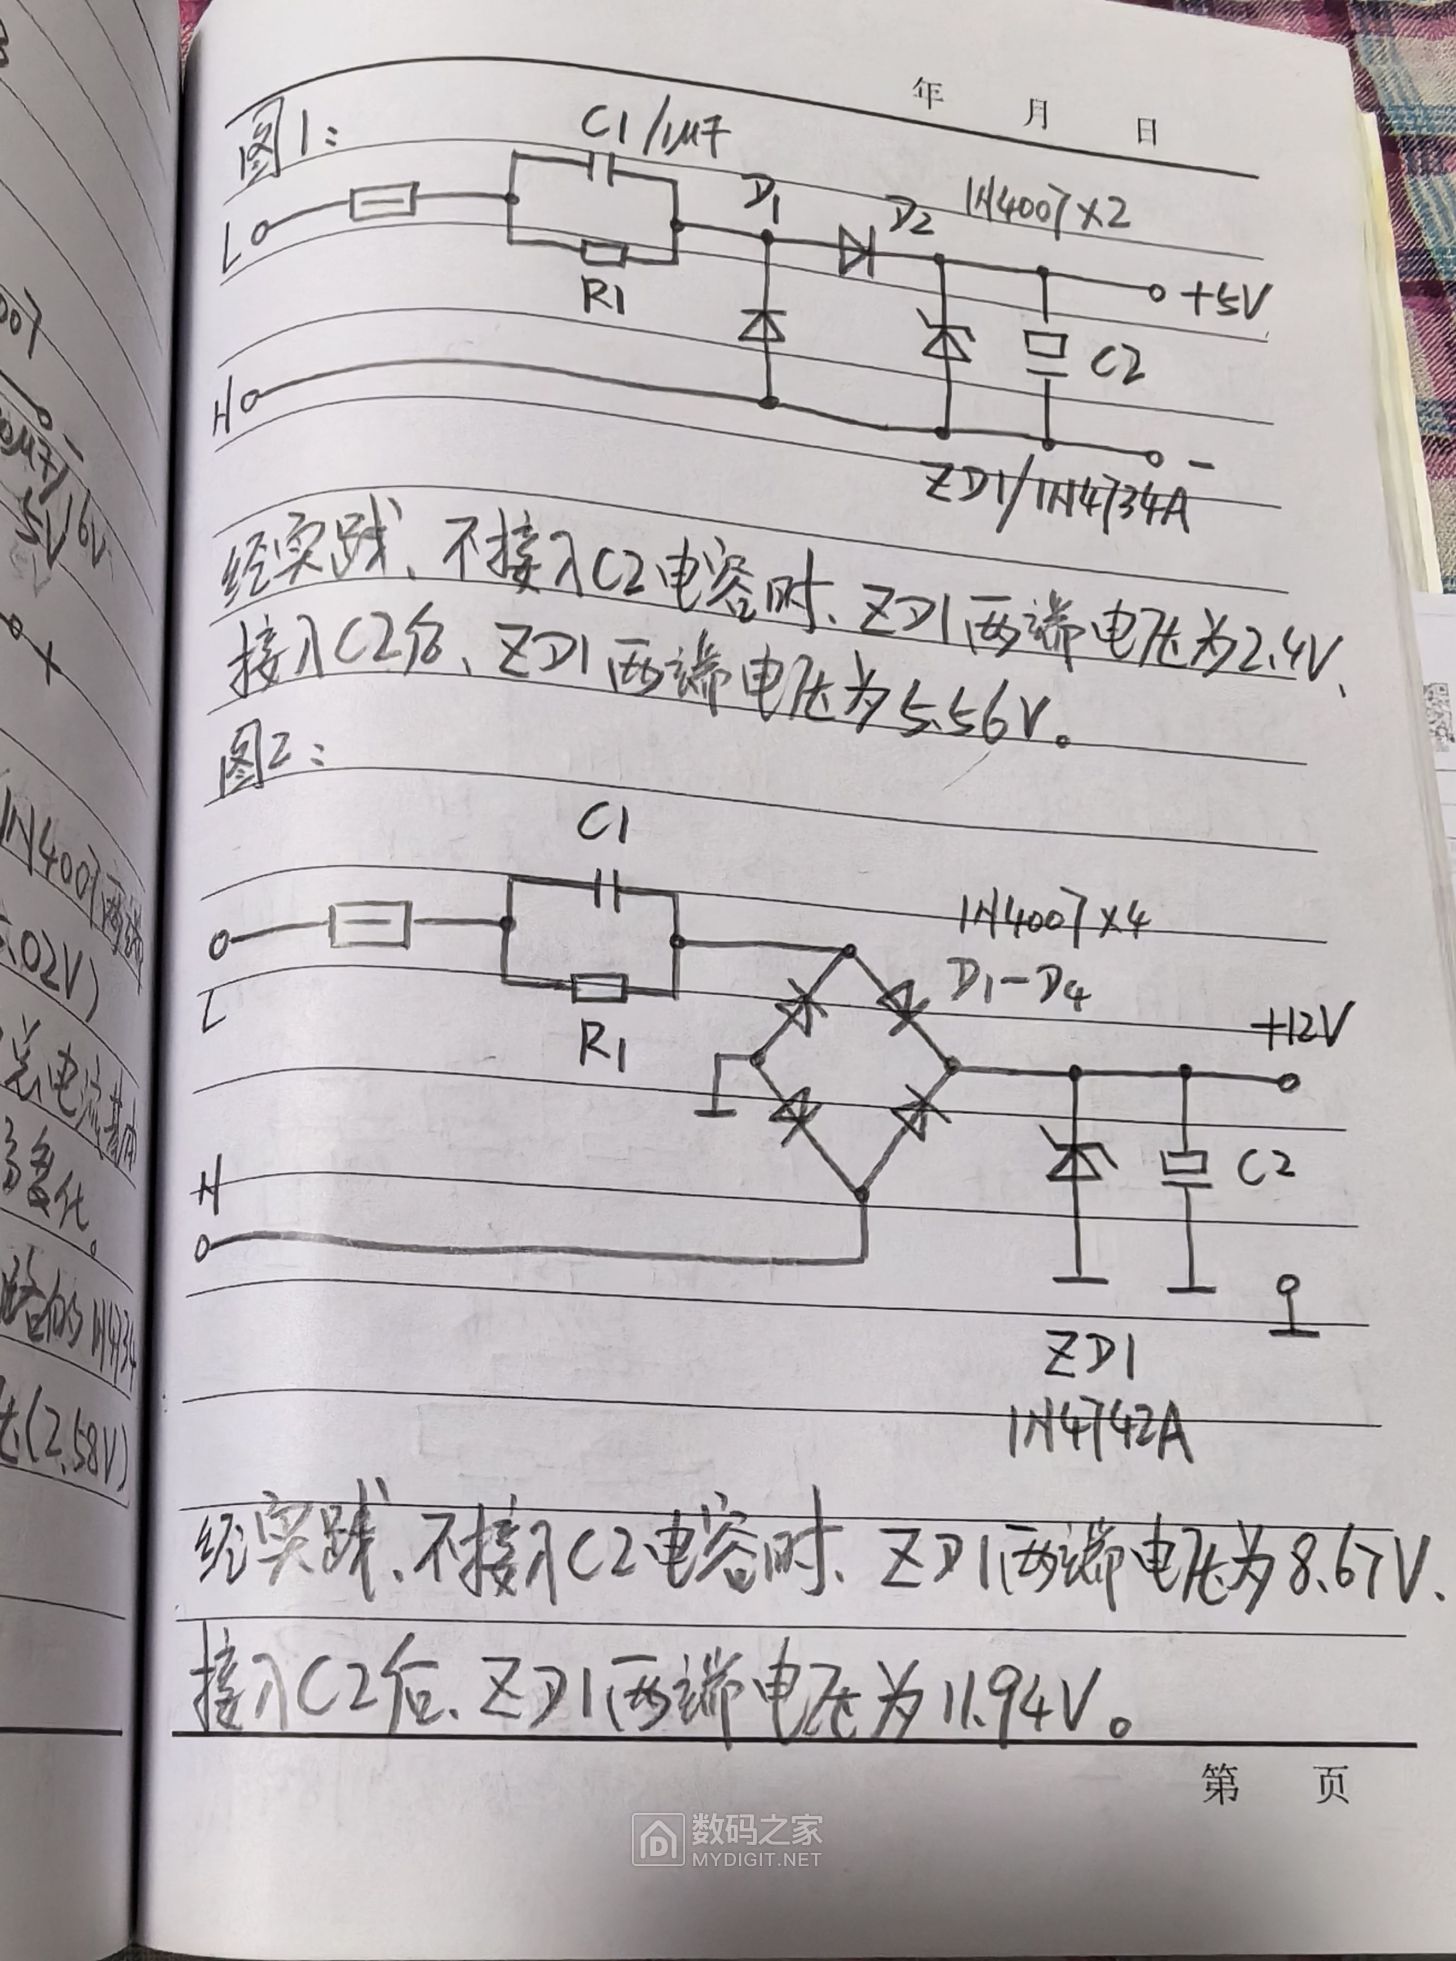 年 月 日
图1:
C1/1μF
D1
D2
1N4007×2
L
R1
+5V
C2
N
-
ZD1/1N4734A
经实践、不接入C2电容时、ZD1两端电压为2.4V、
接入C2后、ZD1两端电压为5.56V。
图2:
C1
1N4007×4
D1-D4
L
R1
+12V
N
C2
ZD1
1N4742A
经实践、不接入C2电容时、ZD1两端电压为8.67V、
接入C2后、ZD1两端电压为11.94V。
第 页
007
5V
+
1N4007两端
.02V)
变化。
路的1N4734
(2.58V)
数码之家
MYDIGIT.NET